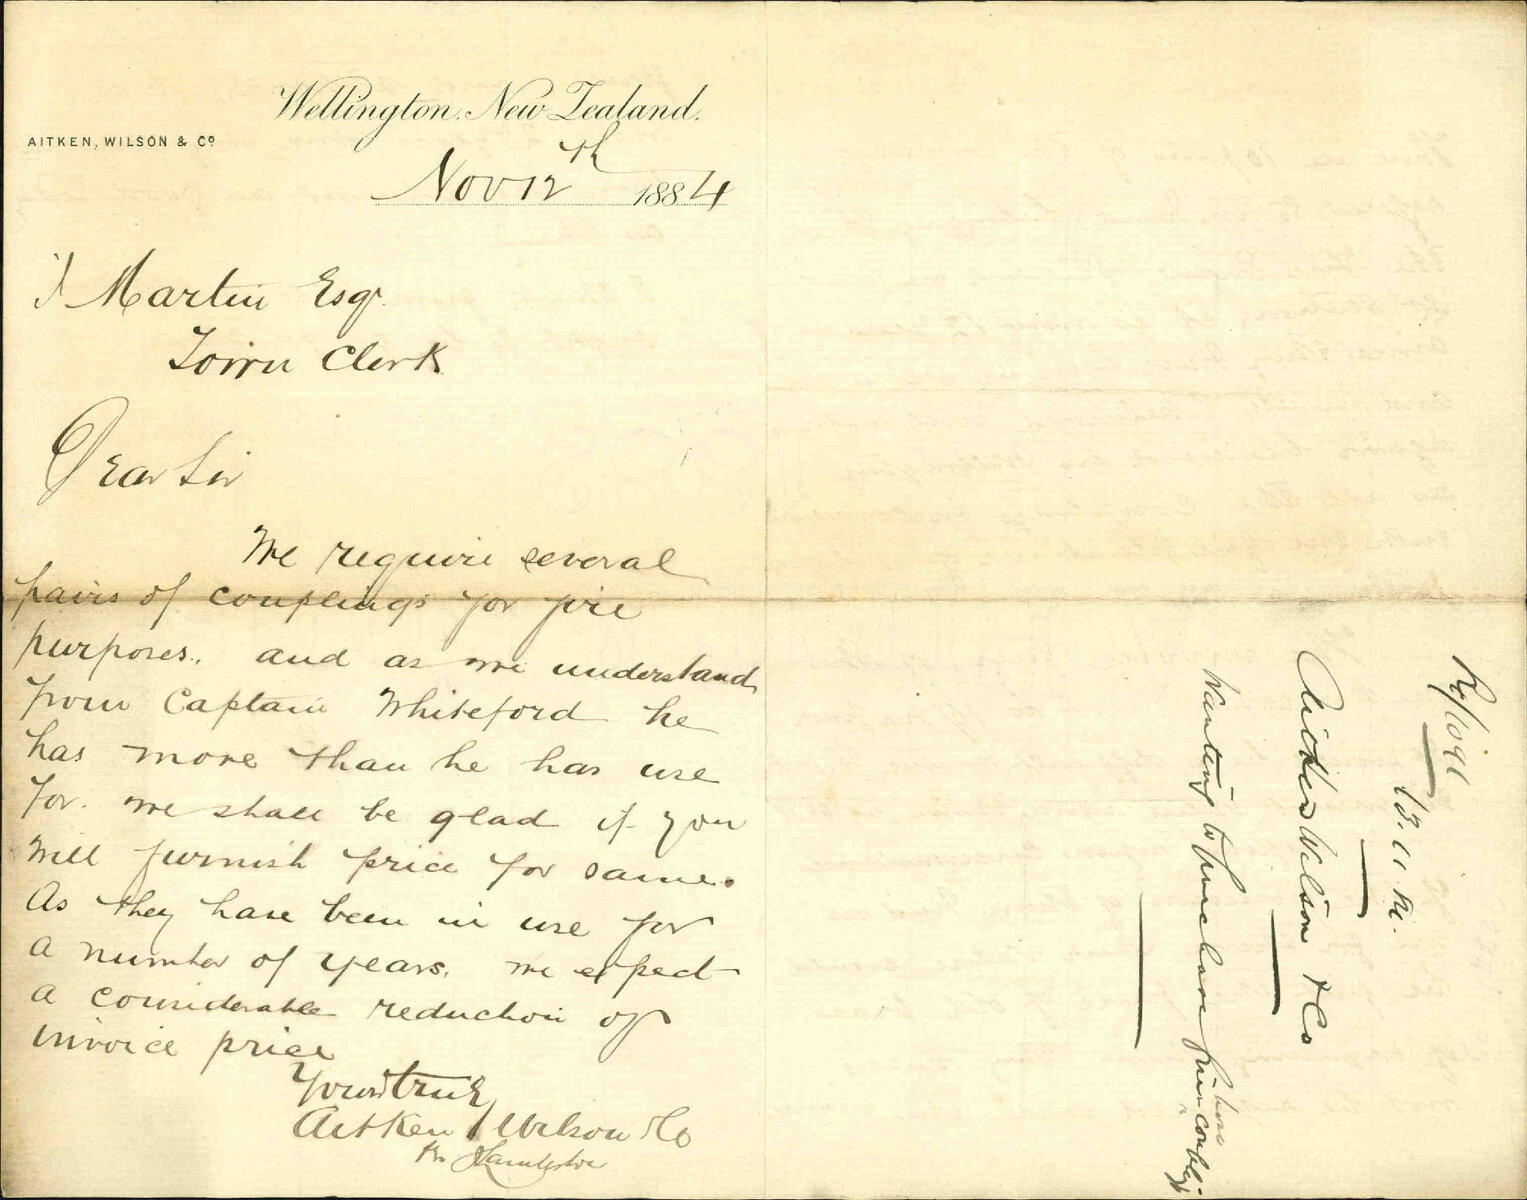 Wellington, New Zealand.
AITKEN, WILSON & Co
Nov 12th 1884
Martin Esqr.
Town Clerk
Dear Sir
We require several
pairs of couplings for fire
purposes, and as we understand
from Captain Whiteford he
has more than he has use
for. we shall be glad if you
will furnish price for same.
As they have been in use for
a number of years, we expect
a considerable reduction off
invoice price
Yours truly
Aitken Wilson & Co
13.11.
Aitken Wilson & Co
Wanting to purchase fire hose coupligs